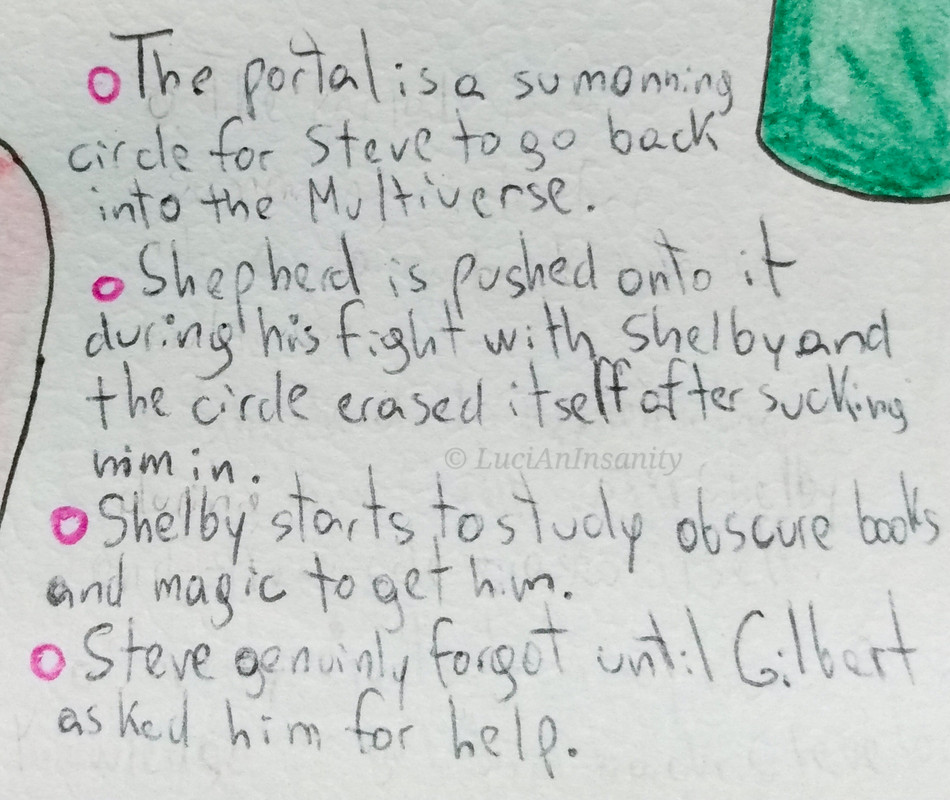 The portal is a sumonning
circle for Steve to go back
into the Multiverse.
Shepherd is pushed onto it
during his fight with Shelby and
the circle erased itself after sucking
him in.
© LuciAnInsanity
Shelby starts to study obscure books
and magic to get him.
Steve genuinly forgot until Gilbert
asked him for help.